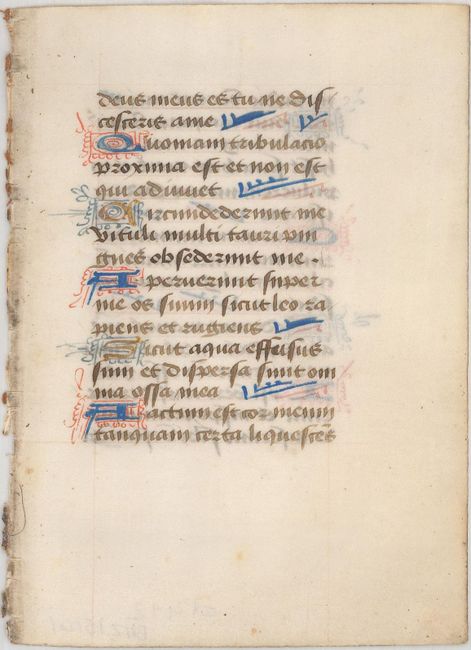 deus meus es tu ne dis
cesseris a me
Quoniam tribulacio
proxima est et non est
qui adiuvet
Circumdederunt me
vituli multi tauri pin
gues obsederunt me .
Aperuerunt super
me os suum sicut leo ra
piens et rugiens
Sicut aqua effusus
sum et dispersa sunt om
nia ossa mea
Factum est cor meum
tanquam cera liquescēs